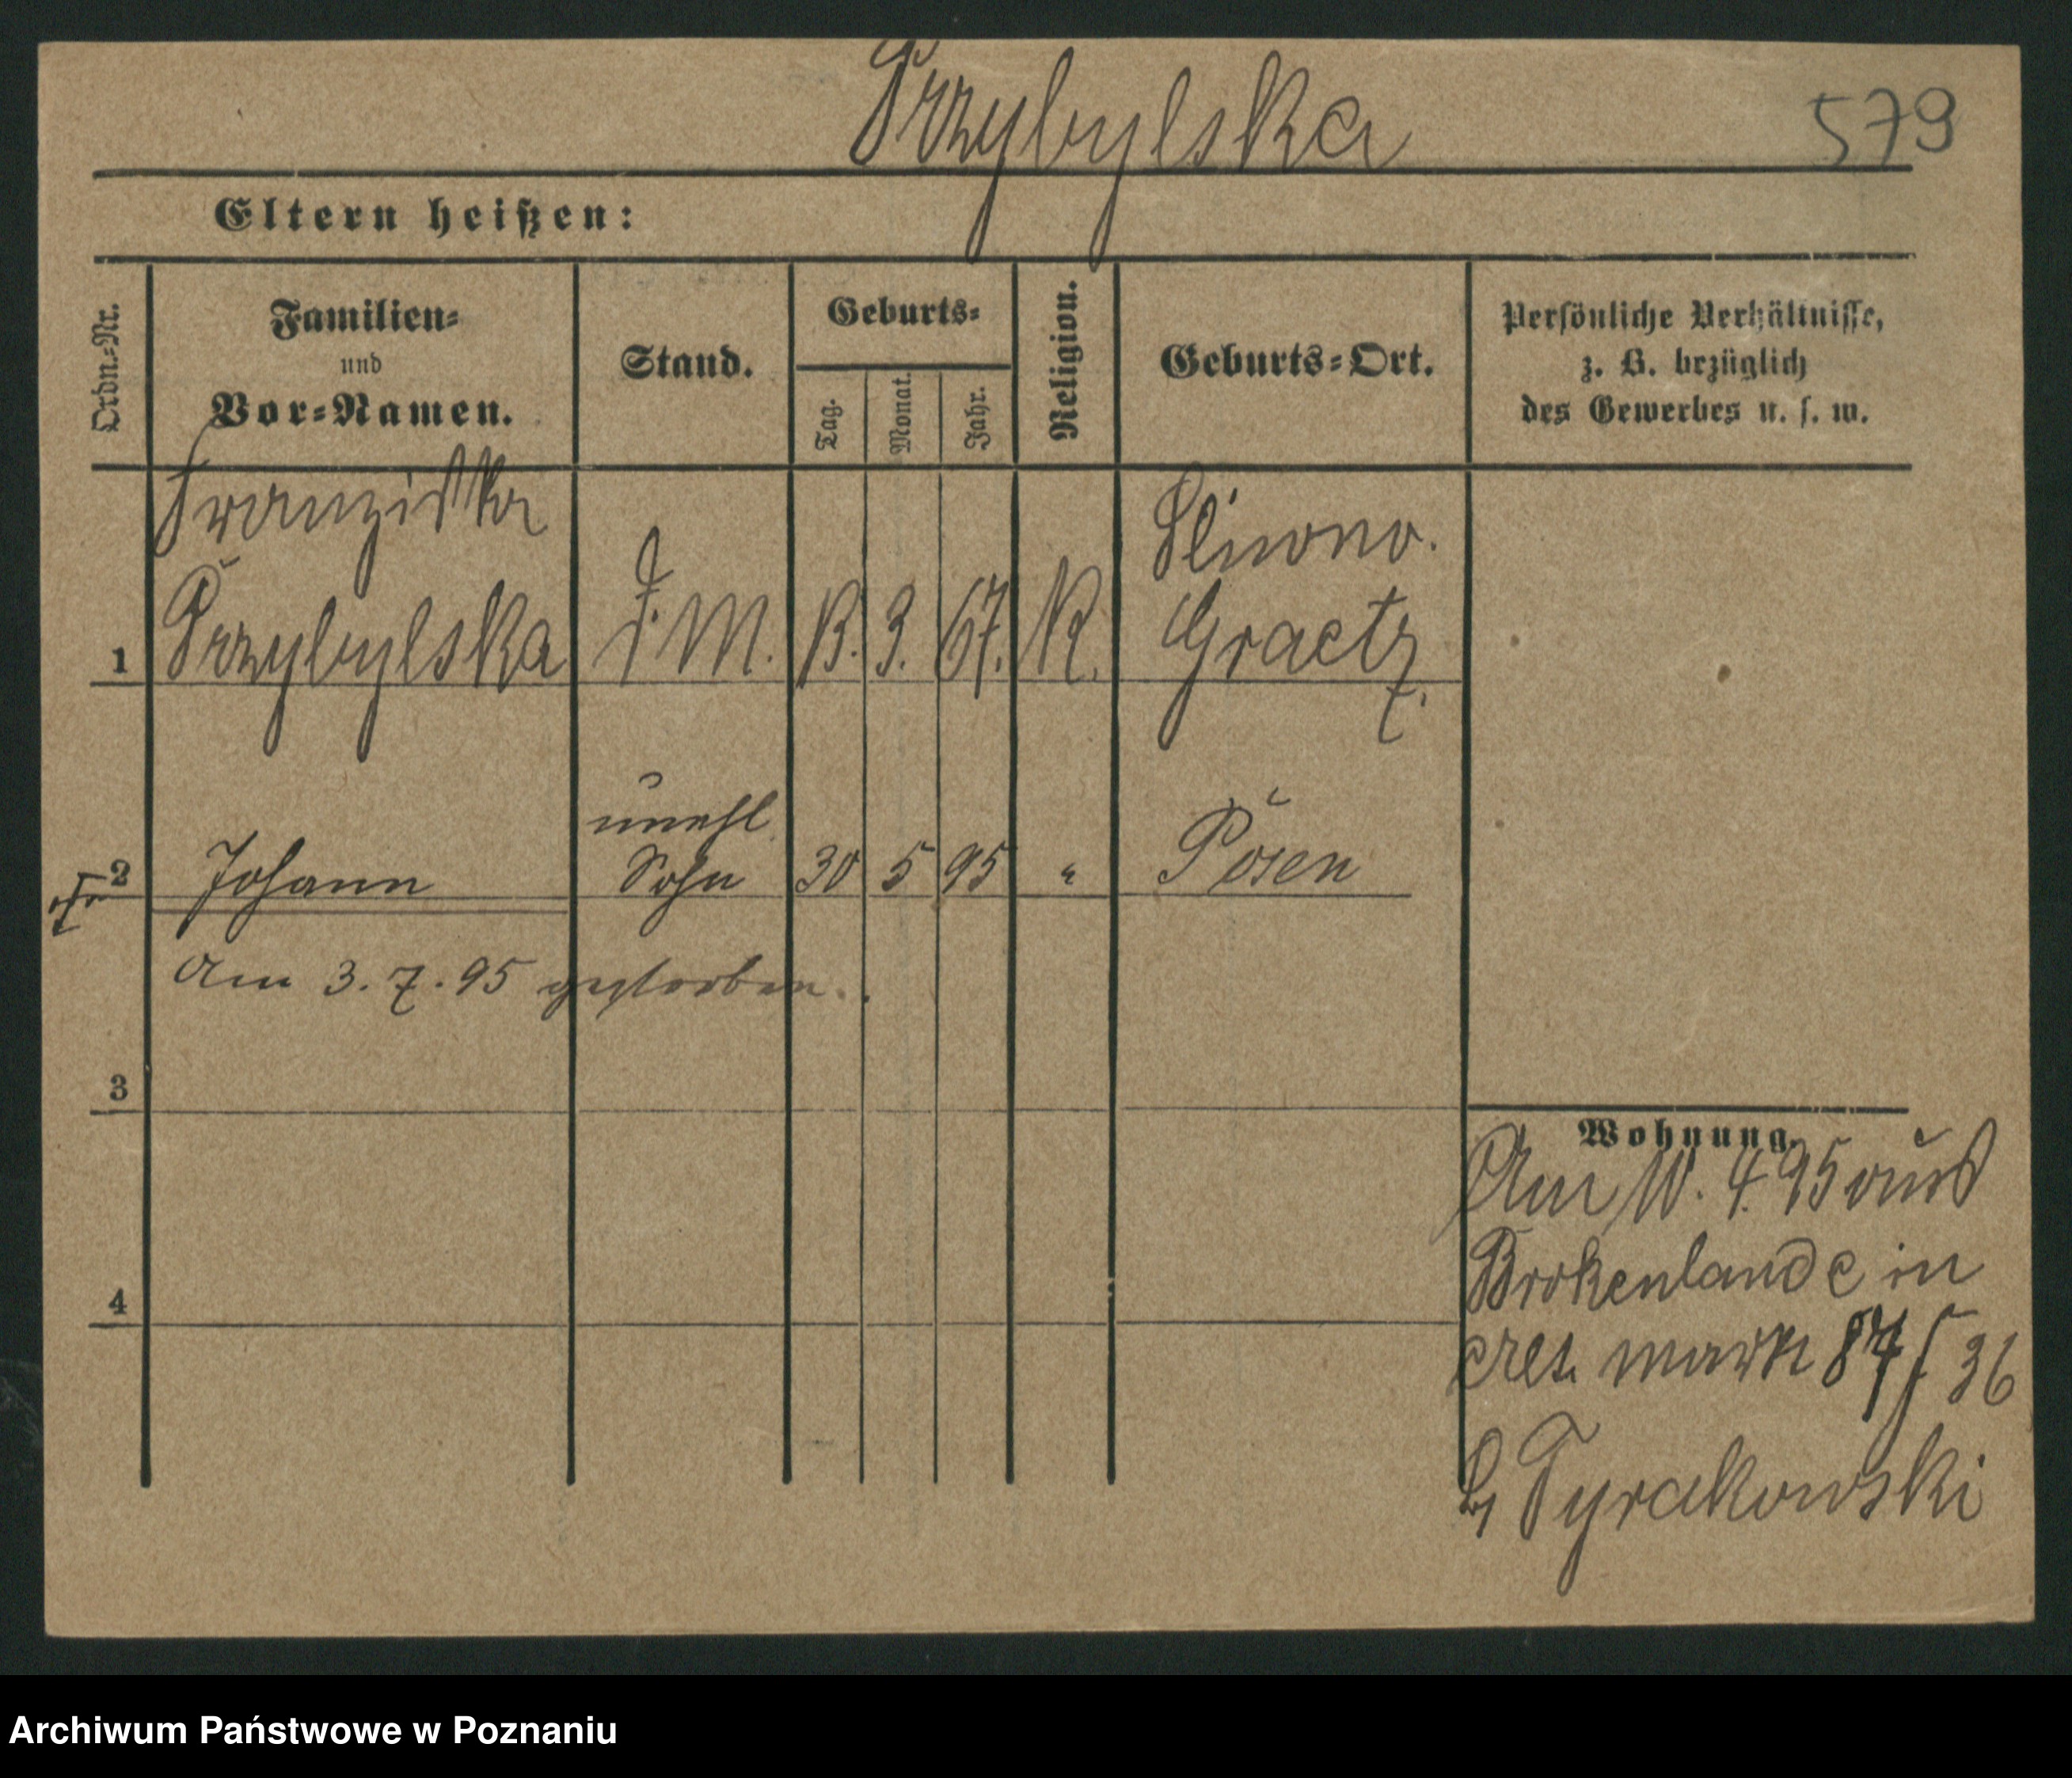 Przybylska
579
Eltern heißen:
Ordn.-Nr.
Familien-
und
Vor-Namen.
Stand.
Geburts-
Tag.
Monat.
Jahr.
Religion.
Geburts-Ort.
Persönliche Verhältnisse,
z. B. bezüglich
des Gewerbes u. s. w.
Franziska
Przybylska
1
M.
3.
67.
K.
Sliwno.
Graetz.
unehl
2
Johann
Sohn
30
5
95
"
Posen
Am 3.7.95 gestorben.
3
Wohnung.
Am 10. 4. 95 aus
Brokenlande in
4
mark 87 36
Tyrakowski
Archiwum Państwowe w Poznaniu